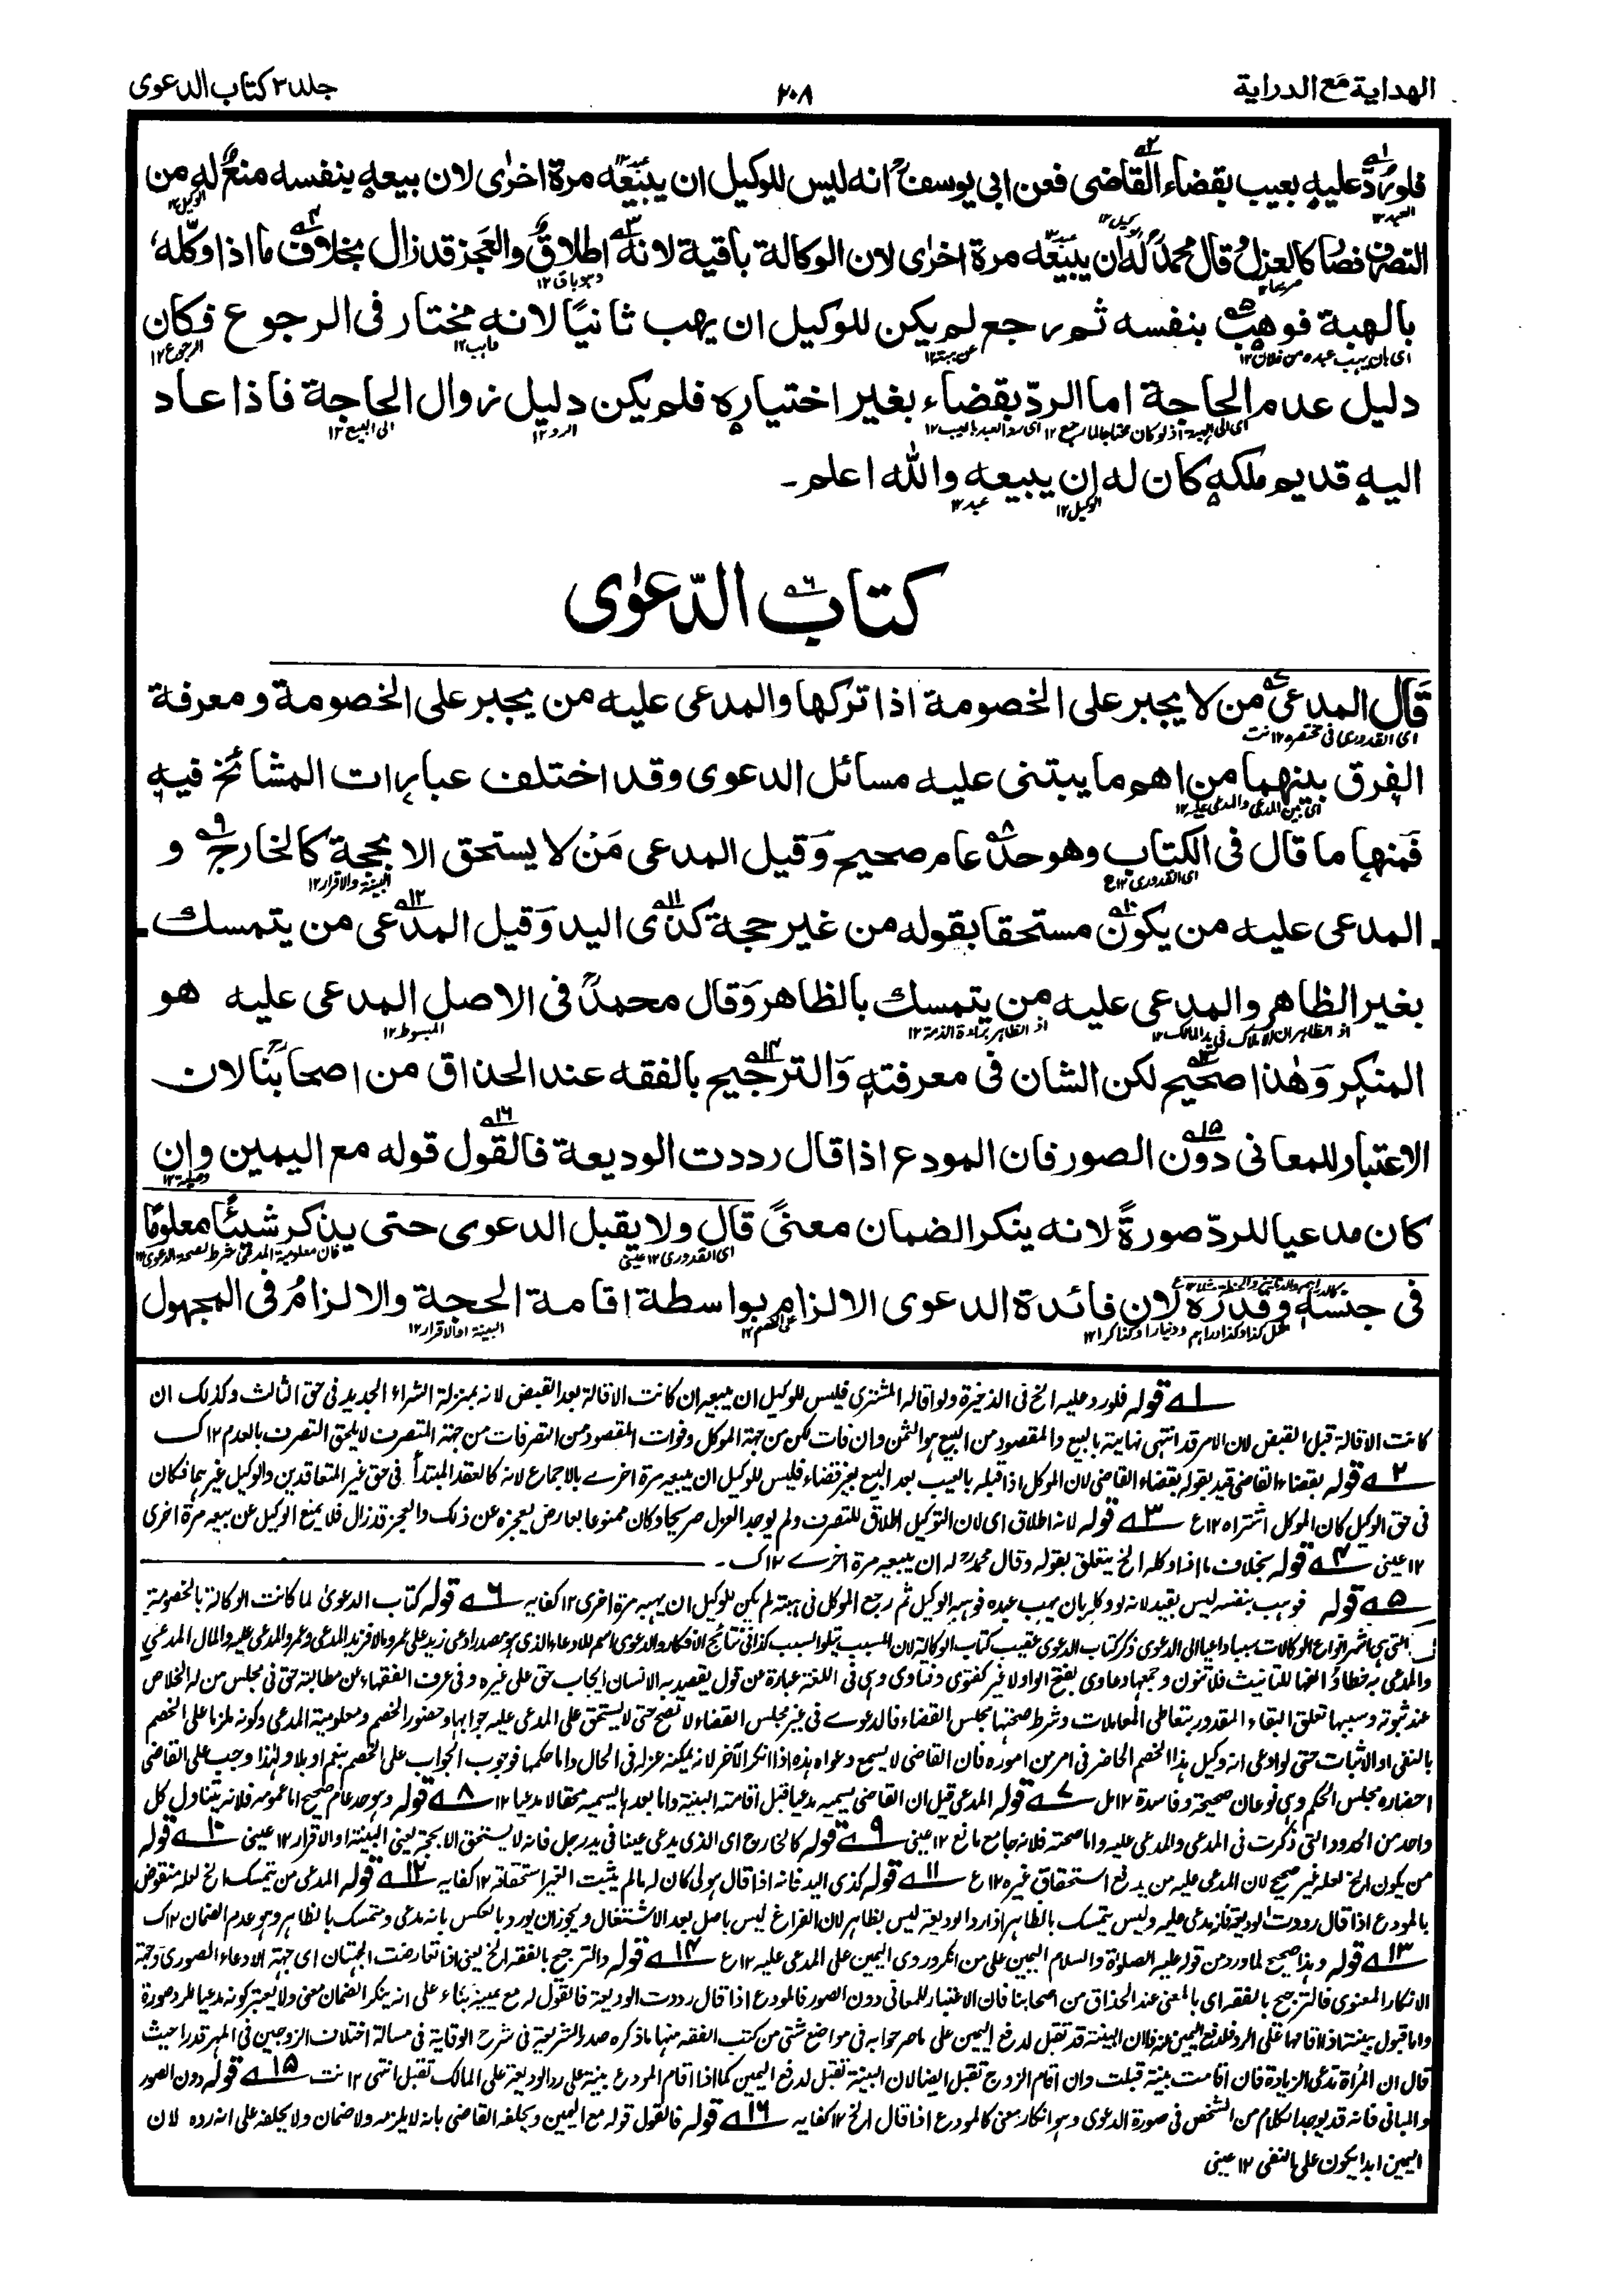 الهداية مع الدراية
٢٠٨
جلد ٣ كتاب الدعوى
فلو رُدَّ عليه بعيب بقضاء القاضى فعن ابى يوسفؒ انه ليس للوكيل ان يبيعه مرة اخرٰى لان بيعه بنفسه منعٌ له من
التصرف فصار كالعزل وقال محمدؒ له ان يبيعه مرة اخرٰى لان الوكالة باقية لانه اطلاق والعجز قد زال بخلاف ما اذا وكّله
بالهبة فوهب بنفسه ثم رجع لم يكن للوكيل ان يهب ثانيًا لانه مختار فى الرجوع فكان
دليل عدم الحاجة اما الردّ بقضاء بغير اختياره فلم يكن دليل زوال الحاجة فاذا عاد
اليه قديم ملكه كان له ان يبيعه والله اعلم۔
كتاب الدّعوٰى
قَال المدعى من لا يجبر على الخصومة اذا تركها والمدعى عليه من يجبر على الخصومة ومعرفة
الفرق بينهما من اهم ما يبتنى عليه مسائل الدعوى وقد اختلف عبارات المشائخ فيه
فمنها ما قال فى الكتاب وهو حدٌّ عام صحيح وَقيل المدعى مَنْ لا يستحق الا بحجة كالخارج و
المدعى عليه من يكون مستحقا بقوله من غير حجة كذى اليد وَقيل المدعى من يتمسك
بغير الظاهر والمدعى عليه من يتمسك بالظاهر وَقال محمدؒ فى الاصل المدعى عليه هو
المنكر وَهٰذا صحيح لكن الشان فى معرفته وَالترجيح بالفقه عند الحذاق من اصحابناؒ لان
الاعتبار للمعانى دون الصور فان المودع اذا قال رددت الوديعة فالقول قوله مع اليمين وان
كان مدعيا للردّ صورةً لانه ينكر الضمان معنىً قال ولا يقبل الدعوى حتى يذكر شيئًا معلومًا
فى جنسه وقدره لان فائدة الدعوى الالزام بواسطة اقامة الحجة والالزامُ فى المجهول
١ـه قوله فلو رد عليه الخ فى الذخيرة ولو اقاله المشترى فليس للوكيل ان يبيعه ان كانت الاقالة بعد القبض لانه بمنزلة الشراء الجديد فى حق الثالث وكذلك ان
كانت الاقالة قبل القبض لان الامر قد انتهى نهايته بالبيع والمقصود من البيع هو الثمن وان فات لكن من جهة الموكل وفوات المقصود من التصرفات من جهة المتصرف لا يلحق التصرف بالعدم ١٢ ك
٢ـه قوله بقضاء القاضى قيد بقوله بقضاء القاضى لان الموكل اذا قبله بالعيب بعد البيع بغير قضاء فليس للوكيل ان يبيعه مرة اخرے بالاجماع لانه كالعقد المبتدأ فى حق غير المتعاقدين والوكيل غيرهما فكان
فى حق الوكيل كان الموكل اشتراه ١٢ ع ٣ـه قوله لانه اطلاق اى لان التوكيل اطلاق للتصرف ولم يوجد العزل صريحا وكان ممنوعا بعارض يعجزه عن ذلك والعجز قد زال فلا يمنع الوكيل عن بيعه مرة اخرى
١٢ عينى ٤ـه قوله بخلاف ما اذا وكله الخ يتعلق بقوله وقال محمدؒ له ان يبيعه مرة اخرے ١٢ ك۔
٥ـه قوله فوهب بنفسه ليس بقيد لانه لو وكله بان يهب عبده فوهبه الوكيل ثم رجع الموكل فى هبته لم يكن للوكيل ان يهبه مرة اخرى ١٢ كفايه ٦ـه قوله كتاب الدعوى لما كانت الوكالة بالخصومة
التى هى اشهر انواع الوكالات سببا داعيا الى الدعوى ذكر كتاب الدعوى عقيب كتاب الوكالة لان المسبب يتلو السبب كذا فى نتائج الافكار والدعوى اسم للادعاء الذى هو مصدر ادعى زيد على عمرو مالا فزيد المدعى وعمرو المدعى عليه والمال المدعى
والمدعى به خطأ والفها للتانيث فلا تنون وجمعها دعاوى بفتح الواو لا غير كفتوى وفتاوى وهى فى اللغة عبارة عن قول يقصد به الانسان ايجاب حق على غيره وفى عرف الفقهاء عن مطالبة حق فى مجلس من له الخلاص
عند ثبوته وسببها تعلق البقاء المقدور بتعاطى المعاملات وشرط صحتها مجلس القضاء فالدعوے فى غير مجلس القضاء لا تصح حتى لا يستحق على المدعى عليه جوابها وحضور الخصم ومعلومية المدعى وكونه ملزما على الخصم
بالنفى او الاثبات حتى لو ادعى انه وكيل هذا الخصم الحاضر فى امر من اموره فان القاضى لا يسمع دعواه هذه اذا انكر الآخر لانه يمكنه عزله فى الحال واما حكمها فوجوب الجواب على الخصم بنعم او بلا ولهذا وجب على القاضى
احضاره مجلس الحكم وهى نوعان صحيحة وفاسدة ١٢ مل ٧ـه قوله المدعى قيل ان القاضى يسميه مدعيا قبل اقامته البينة واما بعدها يسميه محقا لا مدعيا ١٢ ٨ـه قوله وهو حد عام صحيح اما عمومه فلانه يتناول كل
واحد من الحدود التى ذكرت فى المدعى والمدعى عليه واما صحته فلانه جامع مانع ١٢ عينى ٩ـه قوله كالخارج اى الذى يدعى عينا فى يد رجل فانه لا يستحق الا بحجة يعنى البينة او الاقرار ١٢ عينى ١٠ـه قوله
من يكون الخ لعله غير صحيح لان المدعى عليه من يدفع استحقاق غيره ١٢ ع ١١ـه قوله كذى اليد فانه اذا قال هو لى كان له ما لم يثبت الغير استحقاقه ١٢ كفايه ١٢ـه قوله المدعى من يتمسك الخ لعله منقوض
بالمودع اذا قال رددت الوديعة فانه مدعى عليه وليس يتمسك بالظاهر اذ رد الوديعة ليس بظاهر لان الفراغ ليس باصل بعد الاشتغال ويجوز ان يورد بالعكس بانه مدعى ومتمسك بالظاهر وهو عدم الضمان ١٢ ك
١٣ـه قوله وهذا صحيح لما ورد من قوله عليه الصلوٰة والسلام اليمين على من انكر وروى اليمين على المدعى عليه ١٢ ع ١٤ـه قوله والترجيح بالفقه الخ يعنى اذا تعارضت الجهتان اى جهة الادعاء الصورى وجهة
الانكار المعنوى فالترجيح بالفقه اى بالمعنى عند الحذاق من اصحابنا فان الاعتبار للمعانى دون الصور فالمودع اذا قال رددت الوديعة فالقول له مع يمينه بناء على انه ينكر الضمان معنى ولا يعتبر كونه مدعيا للرد صورة
واما قبول بينته اذا اقامها على الرد فلدفع اليمين عنه فلان البينة قد تقبل لدفع اليمين على ما صرحوا به فى مواضع شتى من كتب الفقه منها ما ذكره صدر الشريعة فى شرح الوقاية فى مسالة اختلاف الزوجين فى المهر قدرا حيث
قال ان المرأة تدعى الزيادة فان اقامت بينة قبلت وان اقام الزوج تقبل ايضا لان البينة تقبل لدفع اليمين كما اذا اقام المودع بينة على رد الوديعة على المالك تقبل انتهى ١٢ نت ١٥ـه قوله دون الصور
والمبانى فانه قد يوجد الكلام من الشخص فى صورة الدعوى وهو انكار معنى كالمودع اذا قال الخ ١٢ كفايه ١٦ـه قوله فالقول قوله مع اليمين ويحلفه القاضى بانه لا يلزمه ولا ضمان ولا يحلفه على انه رده لان
اليمين ابدا يكون على النفى ١٢ عينى